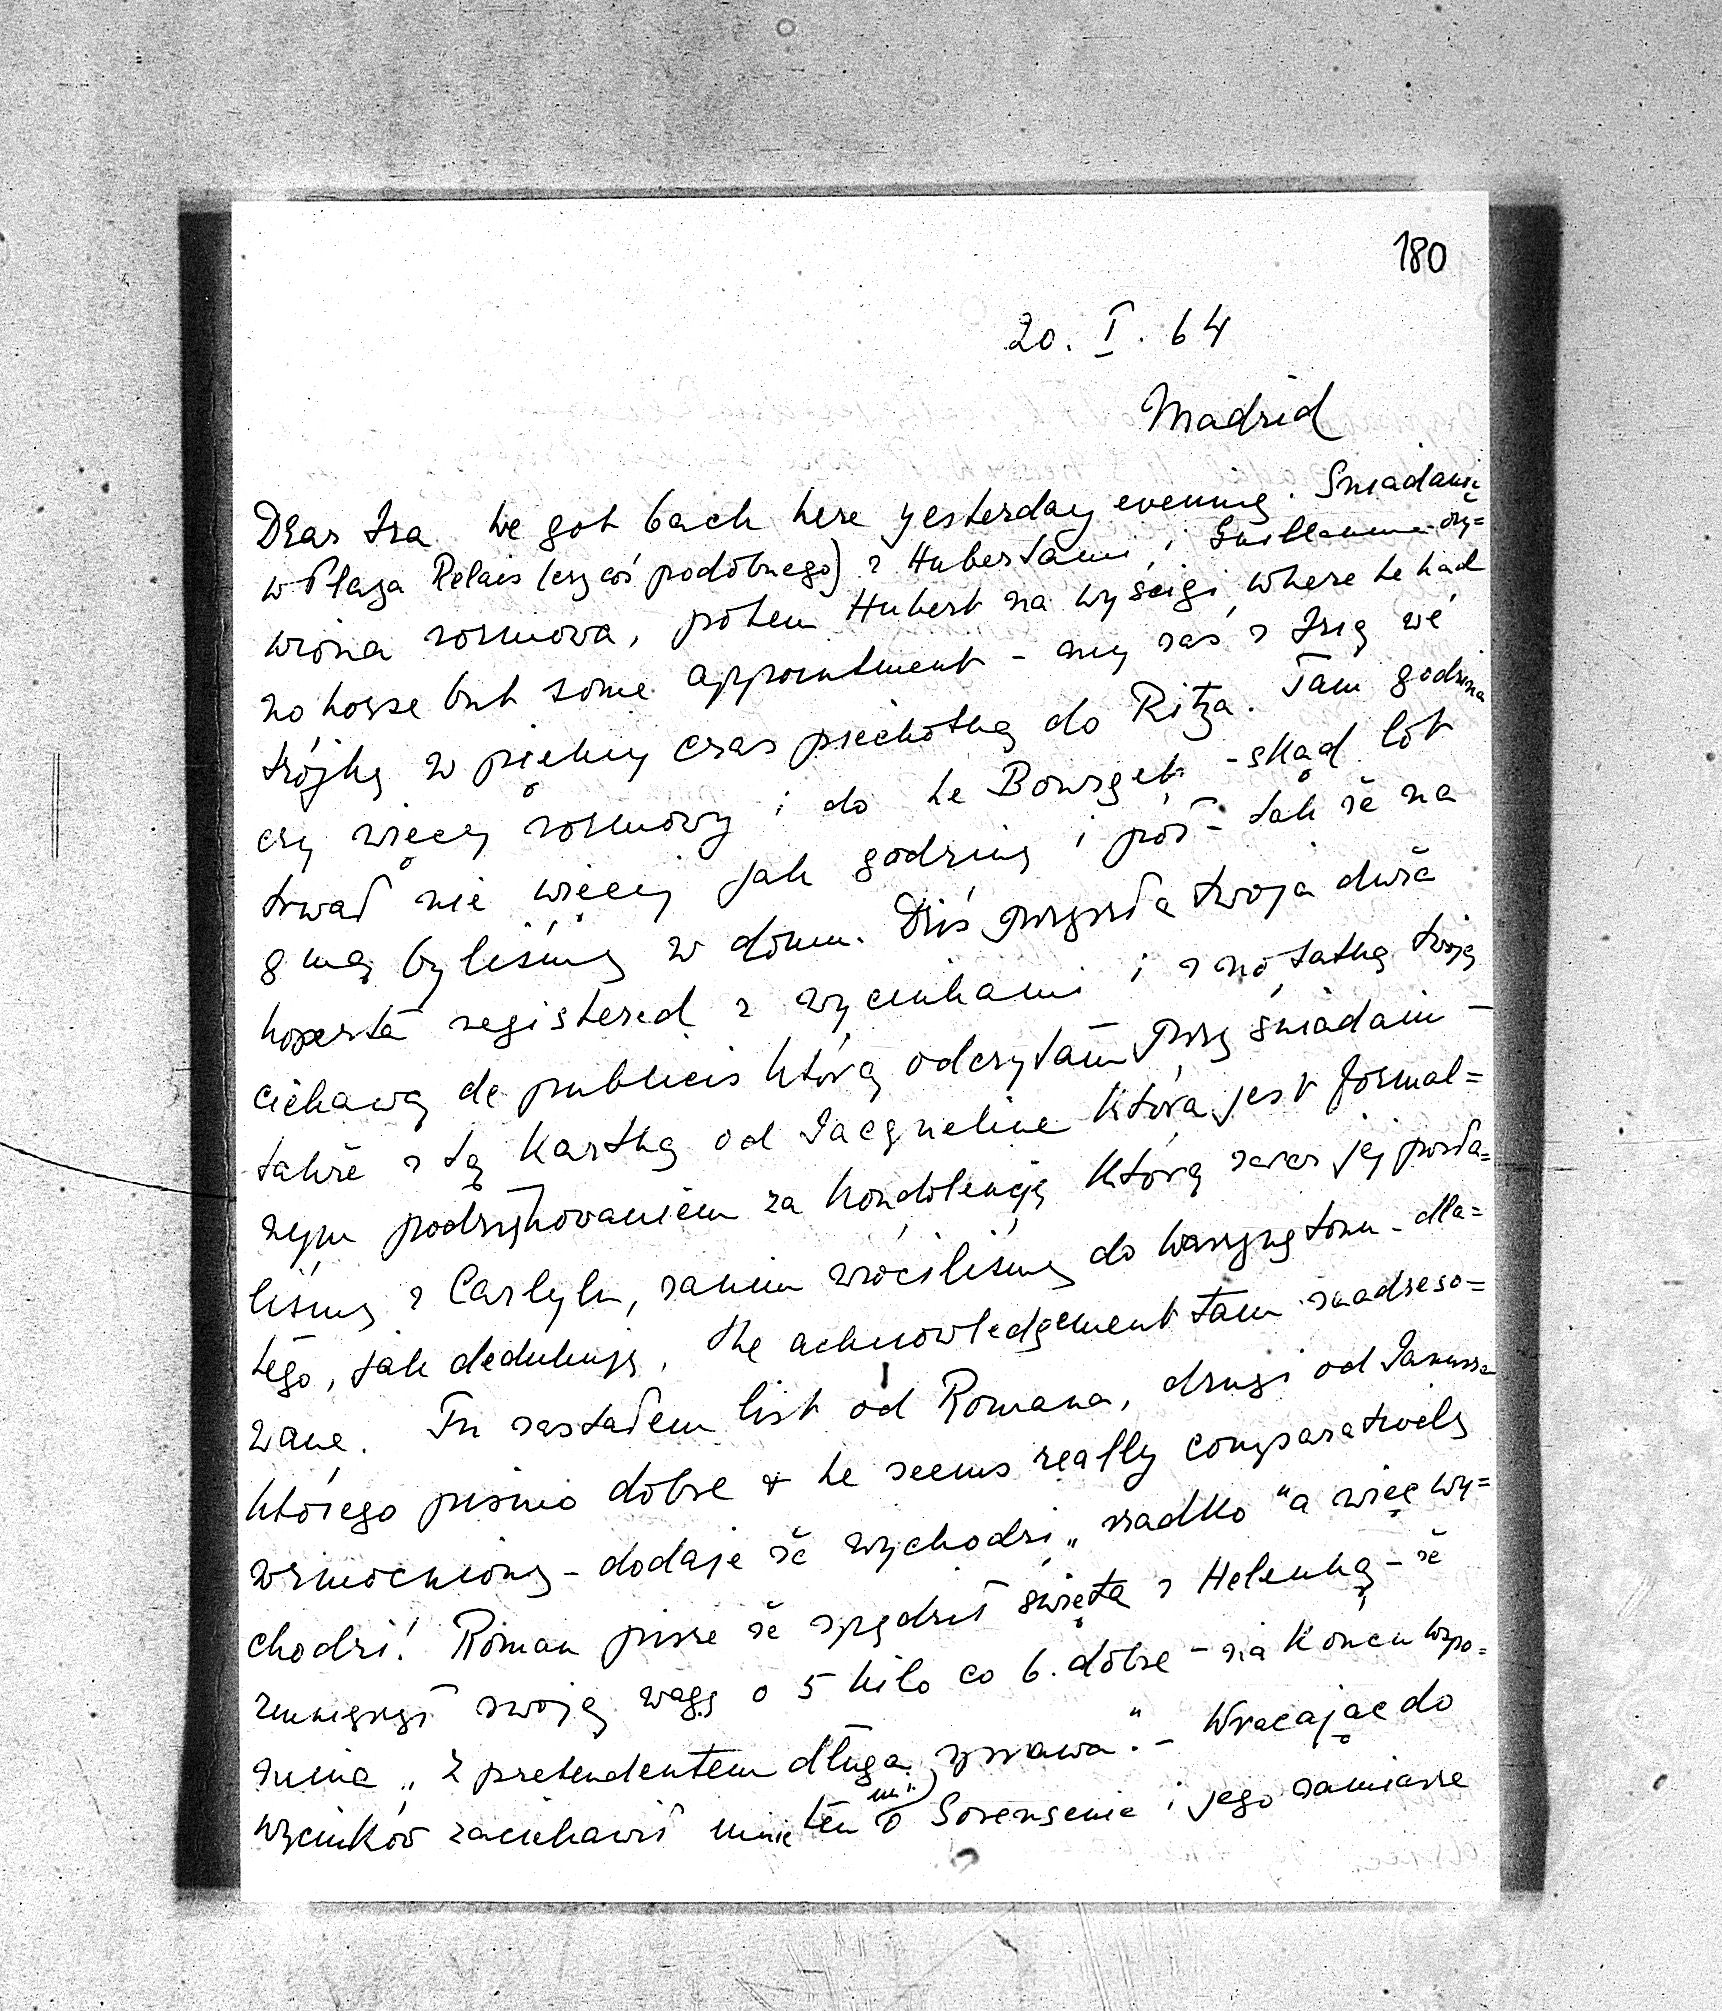 180
20. I. 64
Madrid
Dear Isa we got back here yesterday evening. Śniadanie
w Plaza Relais (czy coś podobnego) z Hubertami, i Guillaume oży=
wiona rozmowa, potem Hubert na wyścigi, where he had
no horse but some appointment - my zaś z Isią we
trójkę w piękny czas piechotką do Ritza. Tam godzina
czy więcej rozmowy i do Le Bourget - skąd lot
trwał nie więcej jak godzinę i pół - tak że na
8mą byliśmy w domu. Dziś przyszła twoja duża
koperta registered z wycinkami i z notatką twoją
ciekawą de publicis którą odczytałam przy śniadaniu -
także z tą kartką od Jacqueline która jest formal=
nym podziękowaniem za kondolencję którą zaraz jej posła=
liśmy z Carlylu, zanim wróciliśmy do Waszyngtonu - dla=
tego, jak dedukuję, the acknowledgement tam zaadreso=
wane. Tu zastałem list od Romana, drugi od Janusza
którego pismo dobre & he seems really comparatively
wzmocniony - dodaje że wychodzi „rzadko" a więc wy=
chodzi! Roman pisze że spędził święta z Helenką - że
zmniejszył swoją wagę o 5 kilo co b. dobre - na końcu wspo=
mina „z pretendentem długa sprawa". - Wracając do
wycinków zaciekawił mnie ten o Sorensenie i jego zamiarze